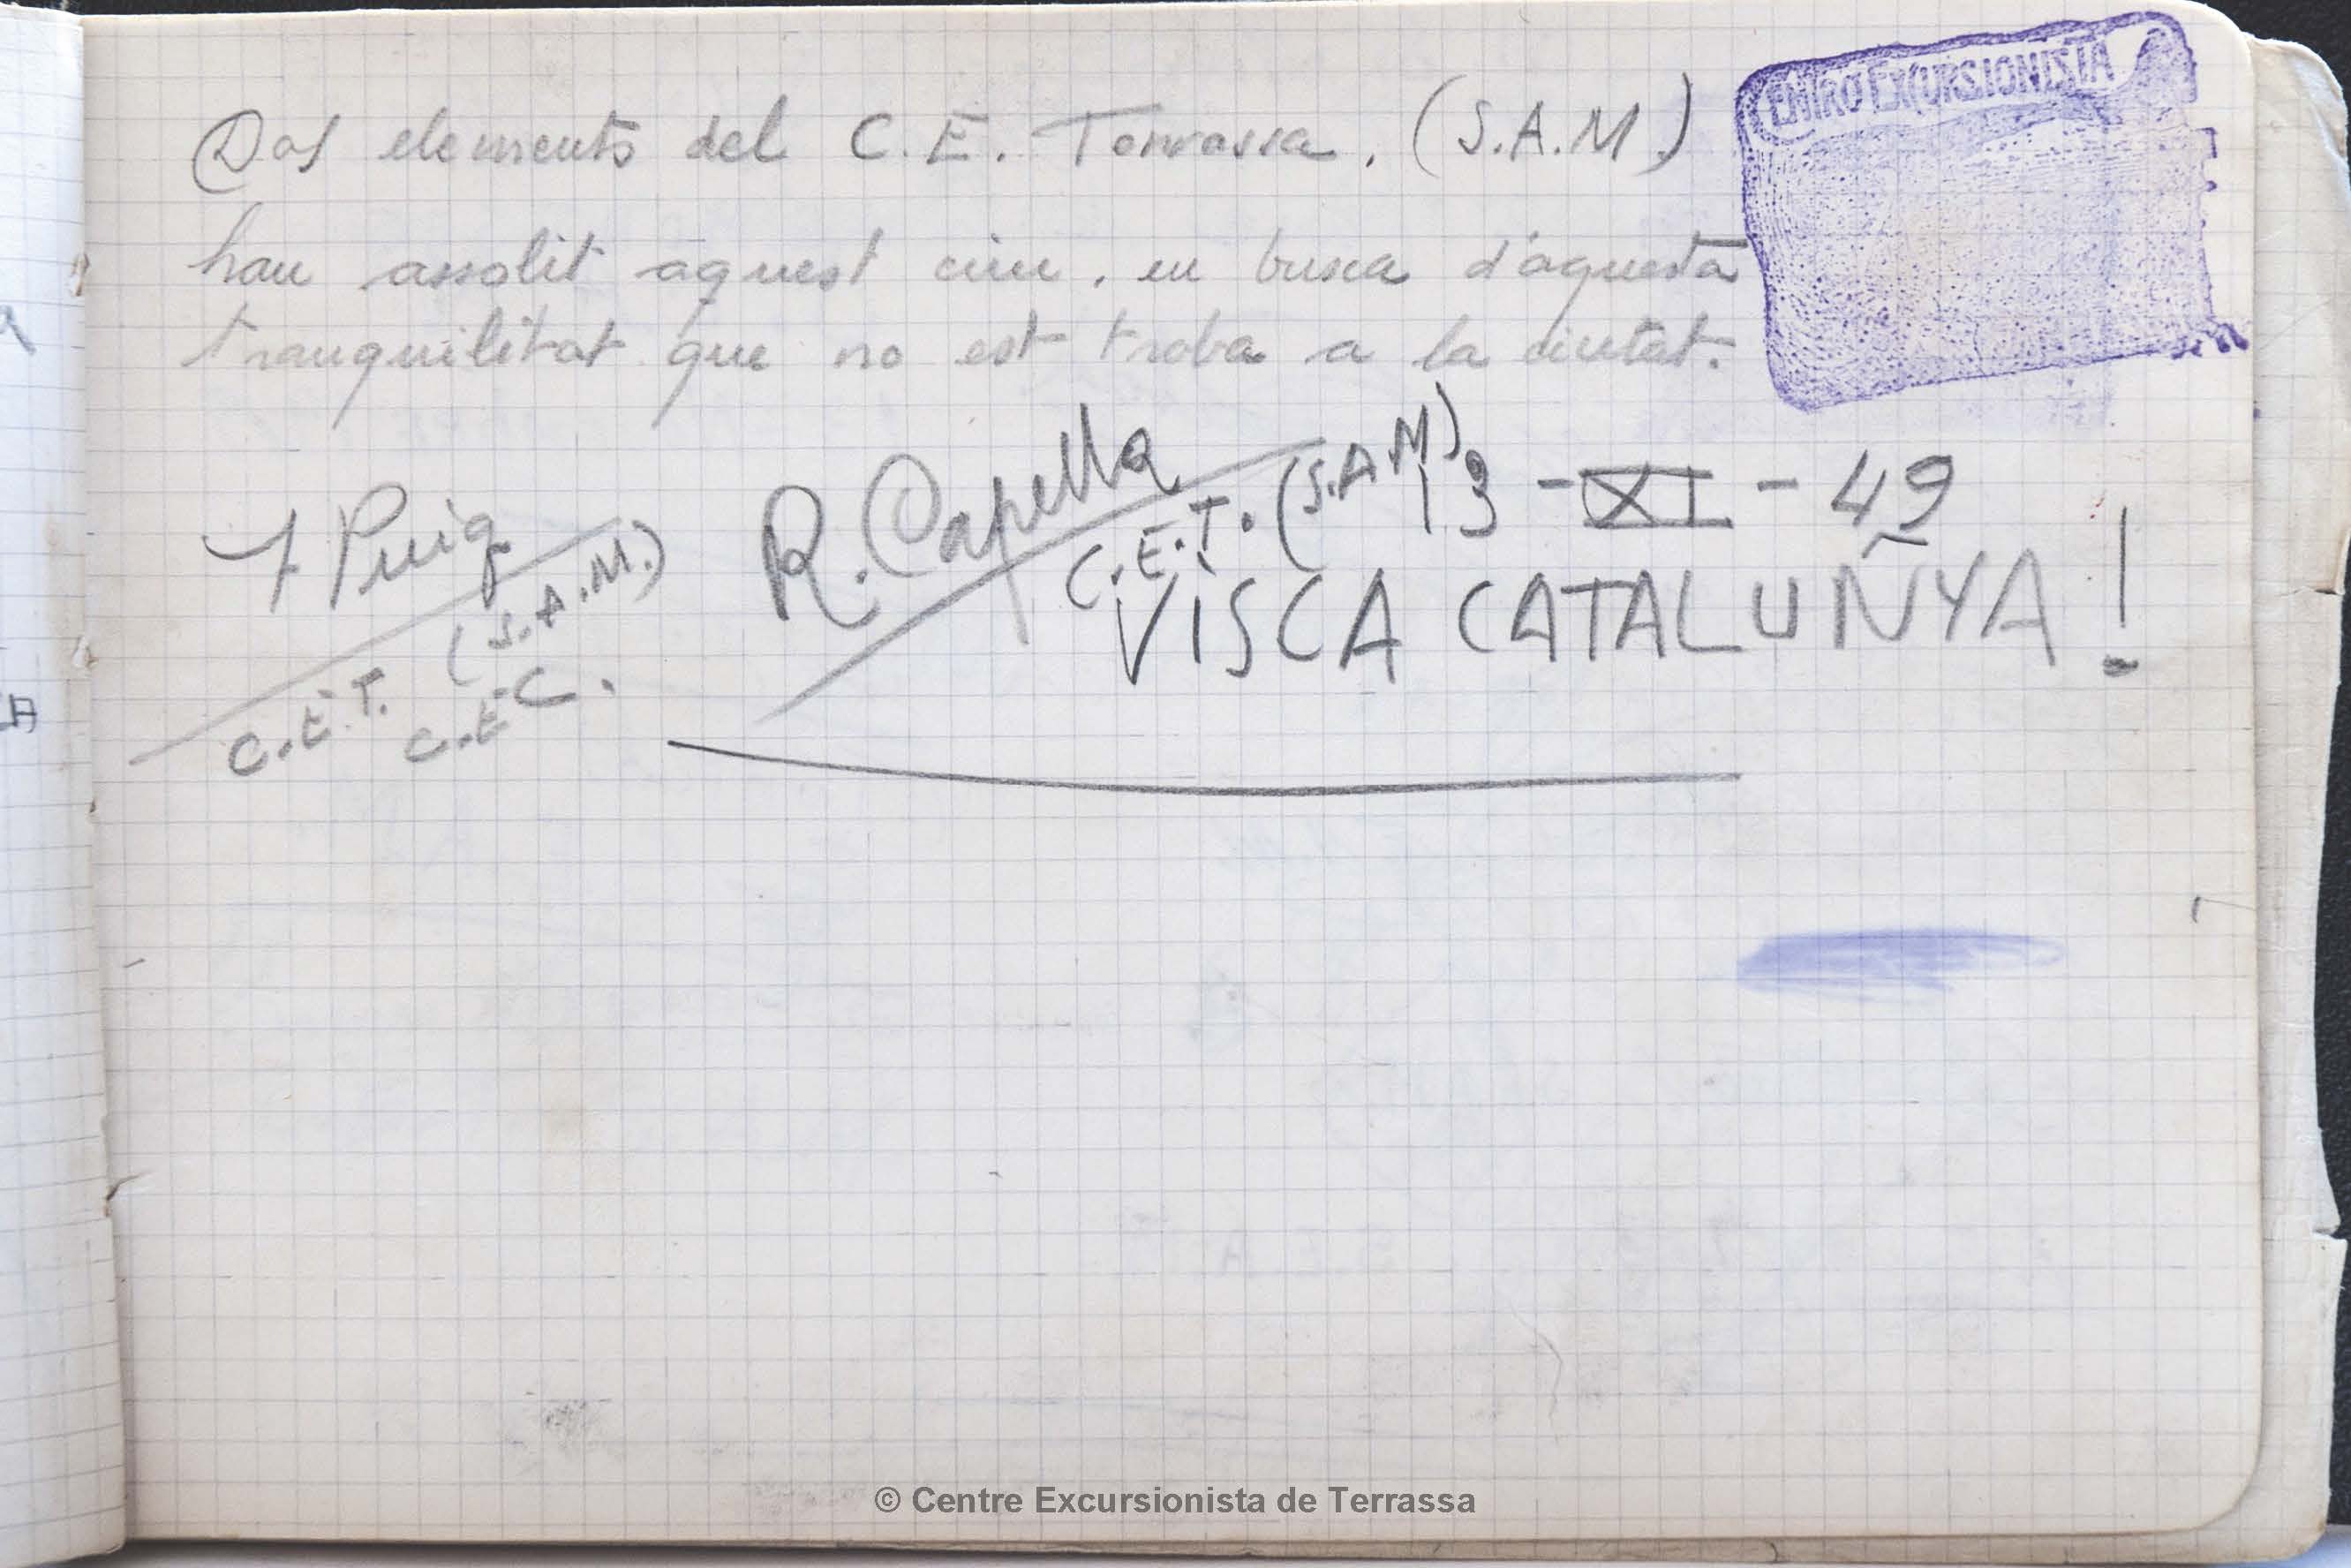 Dos elements del C.E. Tarrassa. (S.A.M)
han assolit aquest cim, en busca d'aquesta
tranquilitat que no est troba a la ciutat.
CENTRO EXCURSIONISTA
Puig
C.E.T. (S.A.M.)
C.E.C.
R. Capella
C.E.T. (S.A.M)
13 - XI - 49
VISCA CATALUÑYA!
© Centre Excursionista de Terrassa